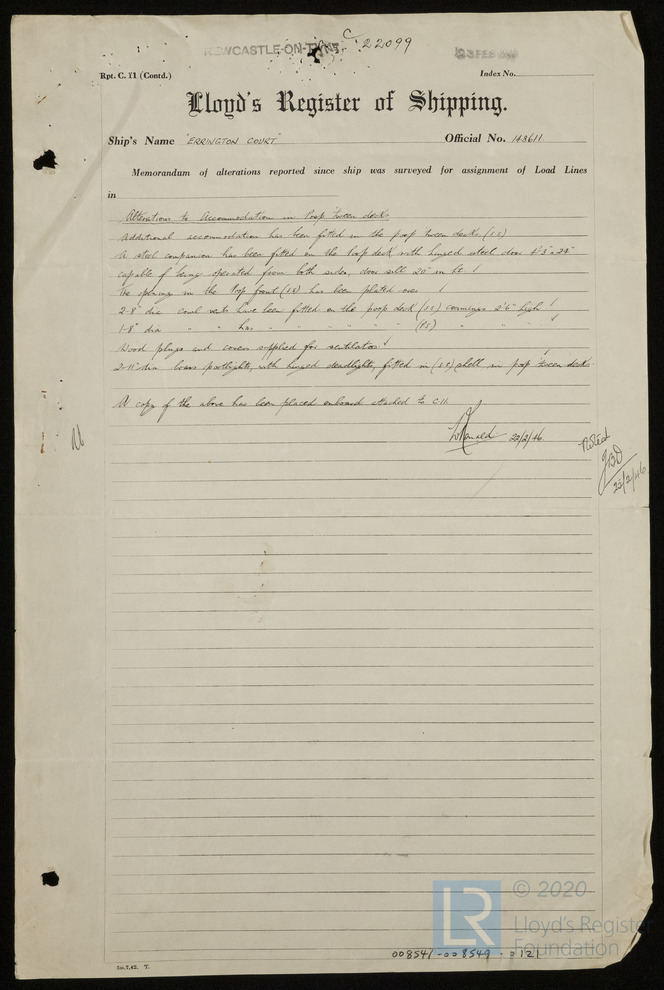 NEWCASTLE-ON-TYNE C. 22099
23 FEB
Rpt. C. 11 (Contd.) Index No.
Lloyd's Register of Shipping.
Ship's Name "ERRINGTON COURT" Official No. 143611
Memorandum of alterations reported since ship was surveyed for assignment of Load Lines
in
Alterations to Accommodation in Poop 'tween decks
Additional accommodation has been fitted in the poop tween decks (S.S)
A steel companion has been fitted on the Poop deck with hinged steel door 4'-3" x 24"
capable of being operated from both sides, door sill 20" in ht
The openings in the Poop front (S.S) has been plated over
2-8" dia cowl vents have been fitted on the poop deck (S.S) coamings 2'6" high
1-8" dia " " has " " " " " " (P.S) " " "
Wood plugs and covers supplied for ventilators
2-11" dia brass portlights, with hinged deadlights, fitted in (S.S) shell in poop 'tween decks
A copy of the above has been placed onboard attached to C.11.
22/2/46
Noted
JBD
25/2/46
Im.7,42. T.
008541-008549-0121
LR
© 2020
Lloyd's Register
Foundation